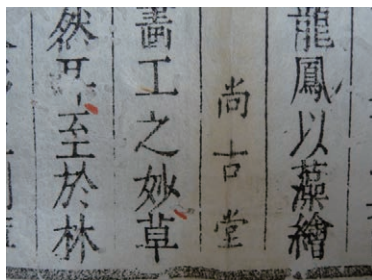 龍鳳以藻繪
尚古堂
畫工之妙草
然耳至於林